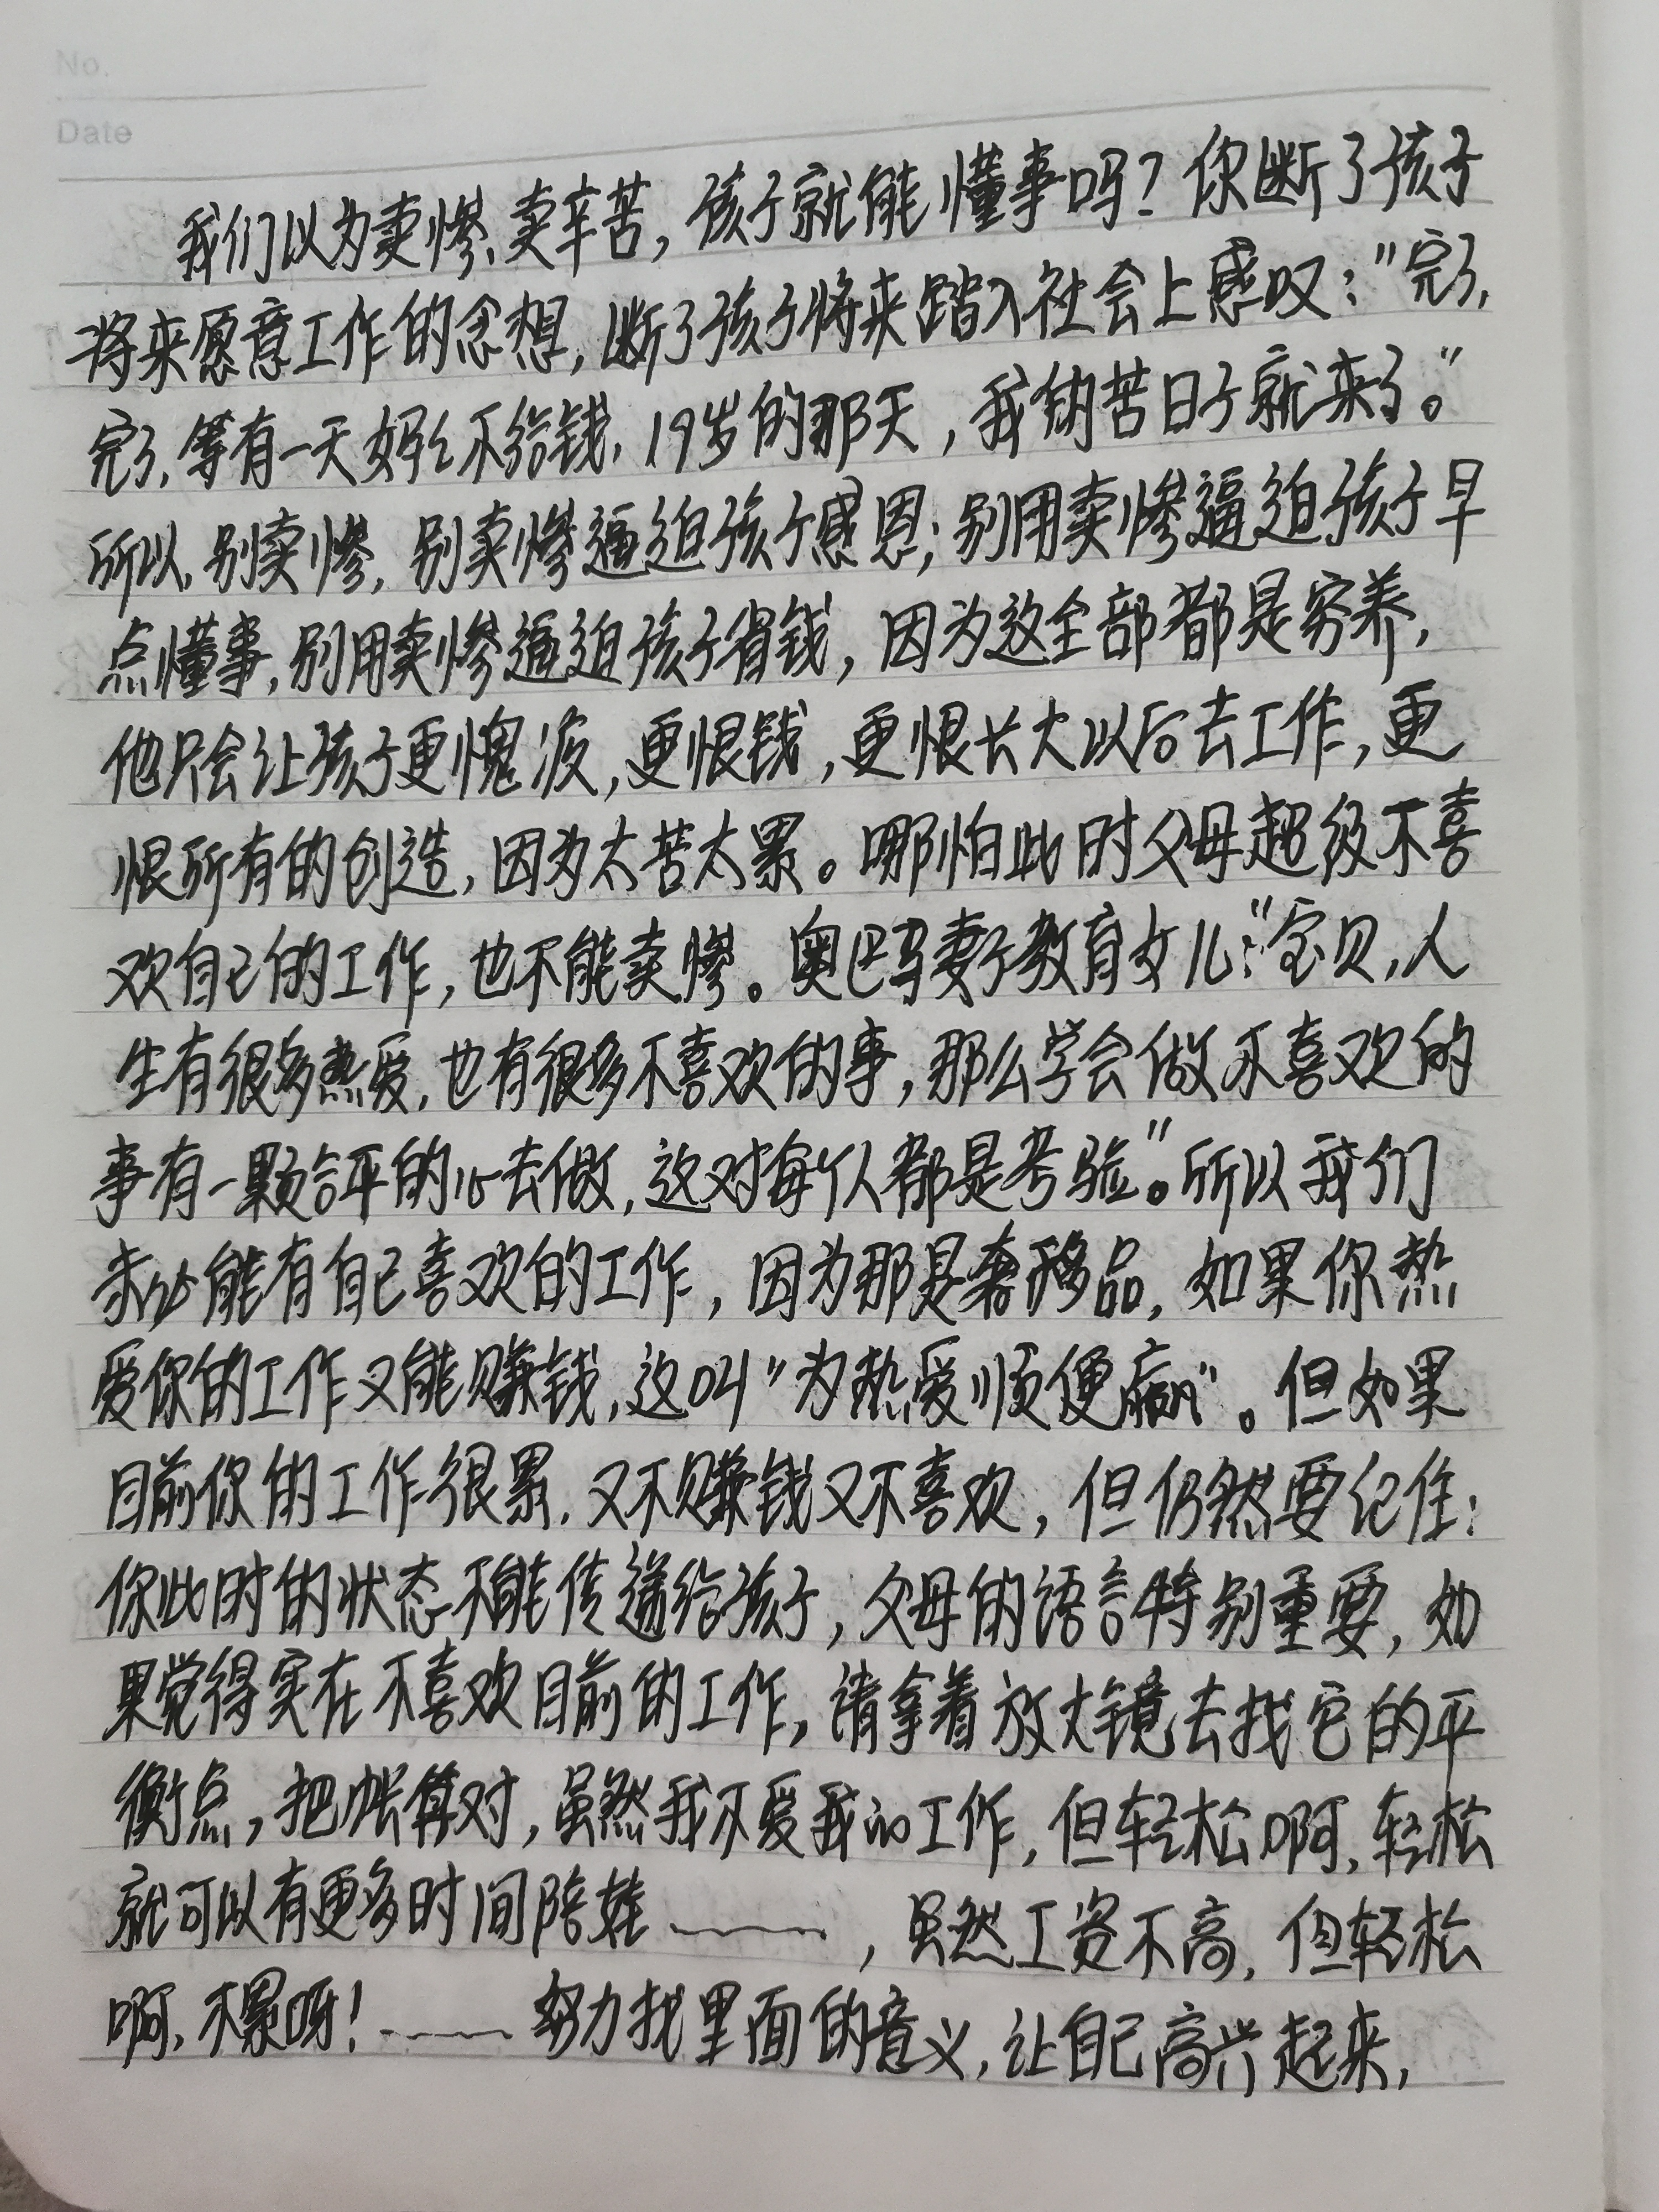 No.
Date
我们以为卖惨、卖辛苦，孩子就能懂事吗？你断了孩子
将来愿意工作的念想，断了孩子将来踏入社会上感叹："完了，
完了，等有一天妈妈不给钱，19岁的那天，我的苦日子就来了。"
所以，别卖惨，别卖惨逼迫孩子感恩；别用卖惨逼迫孩子早
点懂事，别用卖惨逼迫孩子省钱，因为这全部都是穷养，
他只会让孩子更愧疚，更恨钱，更恨长大以后去工作，更
恨所有的创造，因为太苦太累。哪怕此时父母超级不喜
欢自己的工作，也不能卖惨。奥巴马妻子教育女儿："宝贝，人
生有很多热爱，也有很多不喜欢的事，那么学会做不喜欢的
事有一颗平的心去做，这对每个人都是考验"。所以我们
未必能有自己喜欢的工作，因为那是奢侈品，如果你热
爱你的工作又能赚钱，这叫"为热爱顺便赢"。但如果
目前你的工作很累，又不赚钱又不喜欢，但仍然要记住：
你此时的状态不能传递给孩子，父母的语言特别重要，如
果觉得实在不喜欢目前的工作，请拿着放大镜去找它的平
衡点，把帐算对，虽然我不爱我的工作，但轻松啊，轻松
就可以有更多时间陪娃……，虽然工资不高，但轻松
啊，不累呀！……努力找里面的意义，让自己高兴起来，